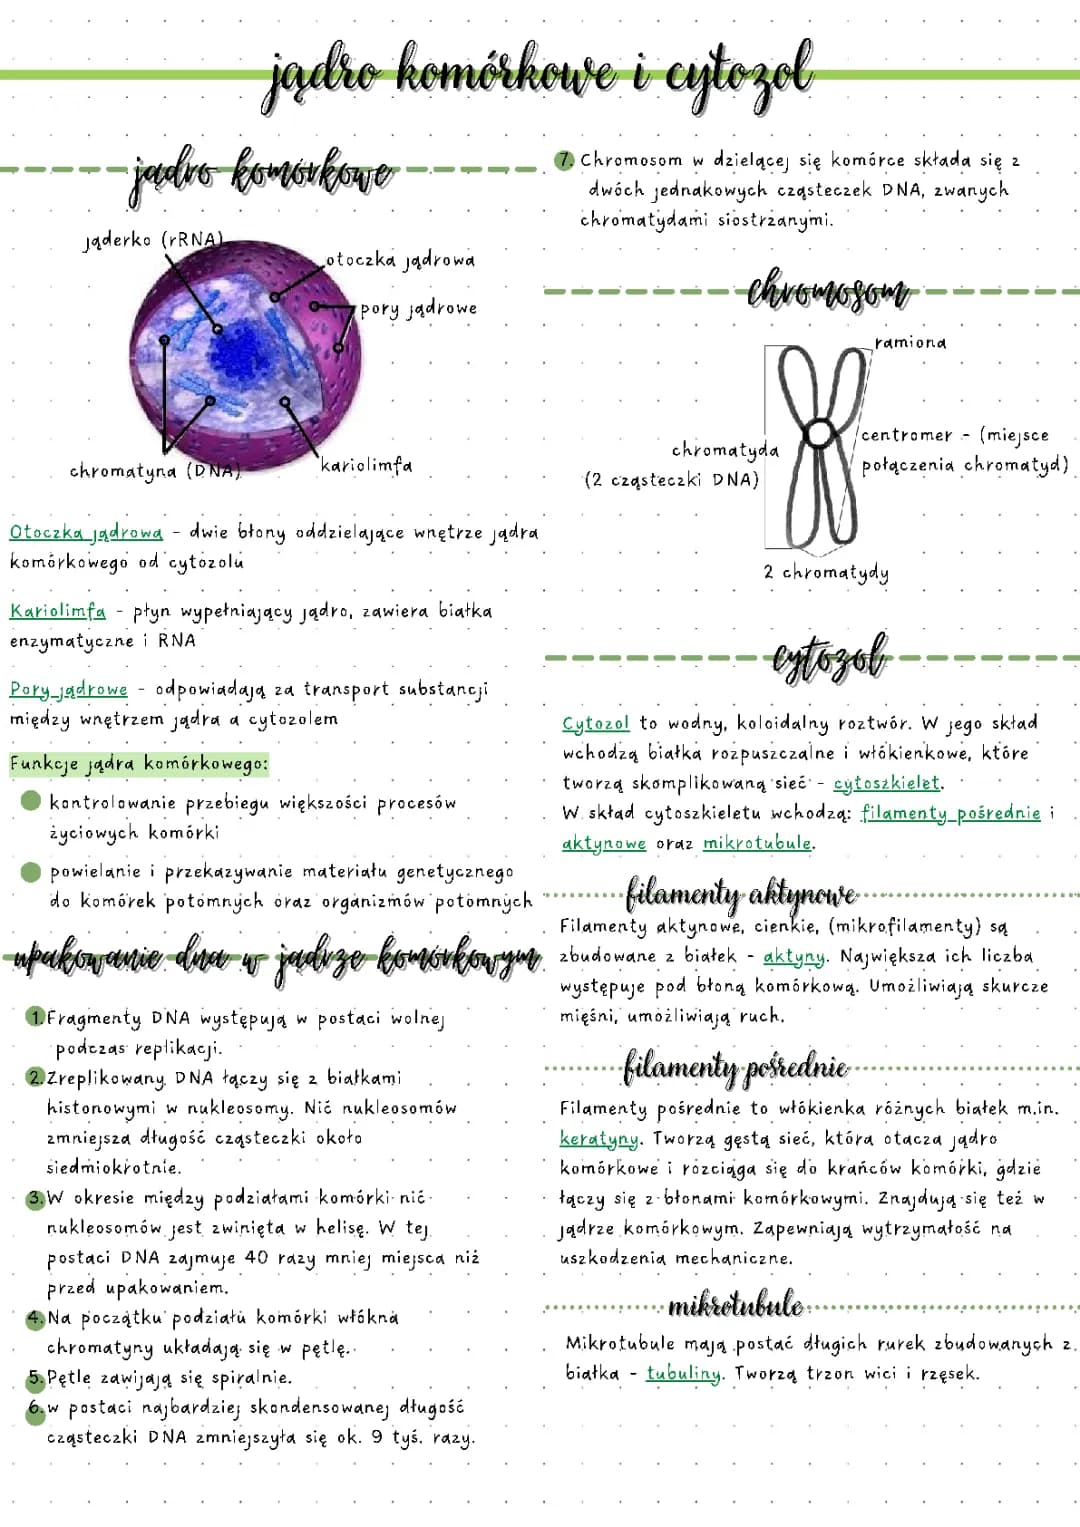 jądro komórkowe i cytozol
jądro komórkowe
jąderko (rRNA)
otoczka jądrowa
pory jądrowe
chromatyna (DNA)
kariolimfa
Otoczka jądrowa - dwie błony oddzielające wnętrze jądra
komórkowego od cytozolu
Kariolimfa - płyn wypełniający jądro, zawiera białka
enzymatyczne i RNA
Pory jądrowe - odpowiadają za transport substancji
między wnętrzem jądra a cytozolem
Funkcje jądra komórkowego:
kontrolowanie przebiegu większości procesów
życiowych komórki
powielanie i przekazywanie materiału genetycznego
do komórek potomnych oraz organizmów potomnych
upakowanie dna w jądrze komórkowym
1. Fragmenty DNA występują w postaci wolnej
podczas replikacji.
2. Zreplikowany DNA łączy się z białkami
histonowymi w nukleosomy. Nić nukleosomów
zmniejsza długość cząsteczki około
siedmiokrotnie.
3. W okresie między podziałami komórki nić
nukleosomów jest zwinięta w helisę. W tej
postaci DNA zajmuje 40 razy mniej miejsca niż
przed upakowaniem.
4. Na początku podziału komórki włókna
chromatyny układają się w pętlę.
5. Pętle zawijają się spiralnie.
6. w postaci najbardziej skondensowanej długość
cząsteczki DNA zmniejszyła się ok. 9 tyś. razy.
7. Chromosom w dzielącej się komórce składa się z
dwóch jednakowych cząsteczek DNA, zwanych
chromatydami siostrzanymi.
chromosom
ramiona
chromatyda
(2 cząsteczki DNA)
centromer - (miejsce
połączenia chromatyd)
2 chromatydy
cytozol
Cytozol to wodny, koloidalny roztwór. W jego skład
wchodzą białka rozpuszczalne i włókienkowe, które
tworzą skomplikowaną sieć - cytoszkielet.
W skład cytoszkieletu wchodzą: filamenty pośrednie i
aktynowe oraz mikrotubule.
filamenty aktynowe
Filamenty aktynowe, cienkie, (mikrofilamenty) są
zbudowane z białek - aktyny. Największa ich liczba
występuje pod błoną komórkową. Umożliwiają skurcze
mięśni, umożliwiają ruch.
filamenty pośrednie
Filamenty pośrednie to włókienka różnych białek m.in.
keratyny. Tworzą gęstą sieć, która otacza jądro
komórkowe i rozciąga się do krańców komórki, gdzie
łączy się z błonami komórkowymi. Znajdują się też w
jądrze komórkowym. Zapewniają wytrzymałość na
uszkodzenia mechaniczne.
mikrotubule
Mikrotubule mają postać długich rurek zbudowanych z
białka - tubuliny. Tworzą trzon wici i rzęsek.